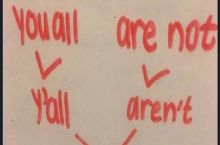 you all are not
y'all aren't